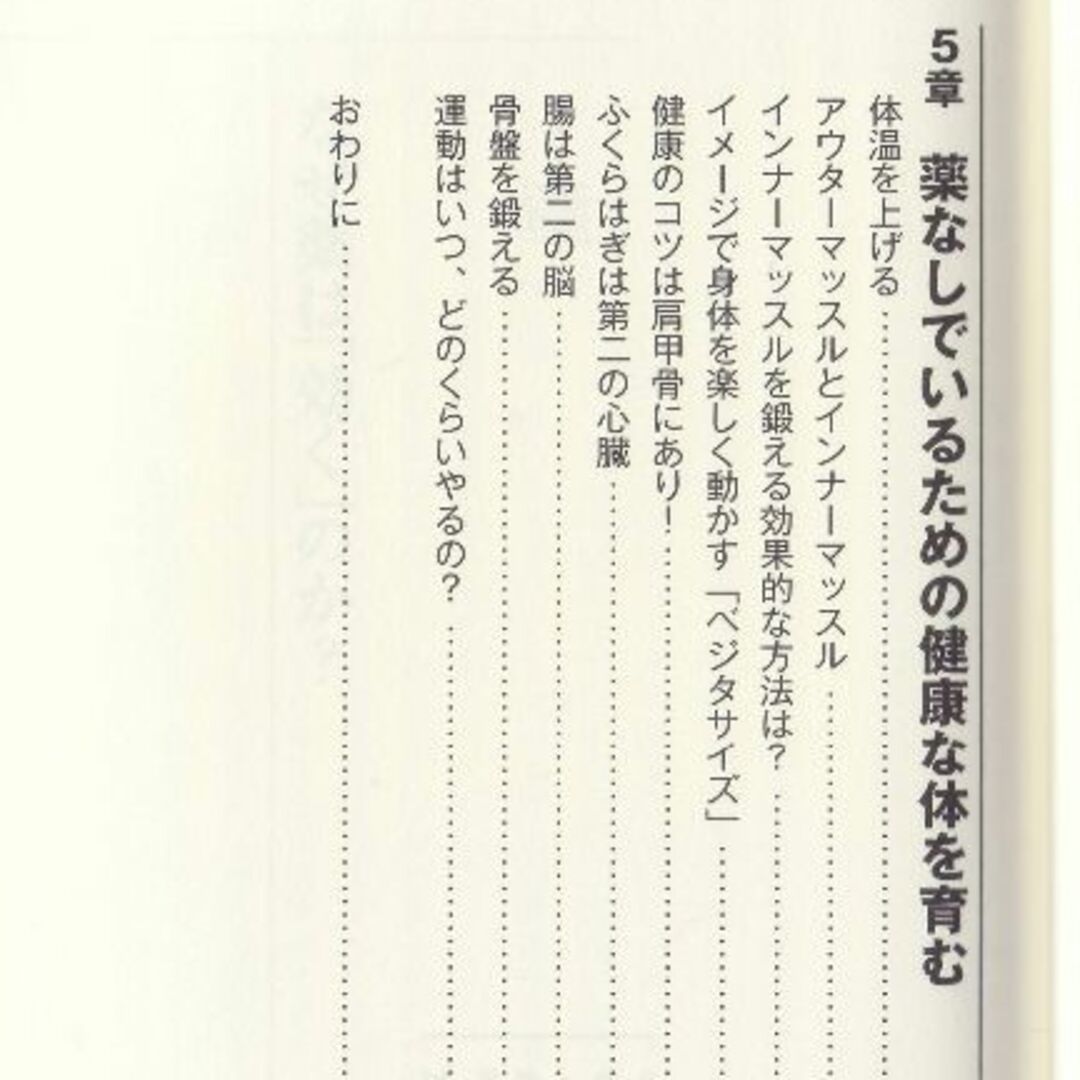 5章 薬なしでいるための健康な体を育む
体温を上げる
アウターマッスルとインナーマッスル
インナーマッスルを鍛える効果的な方法は?
イメージで身体を楽しく動かす「ベジタサイズ」
健康のコツは肩甲骨にあり!
ふくらはぎは第二の心臓
腸は第二の脳
骨盤を鍛える
運動はいつ、どのくらいやるの?
おわりに